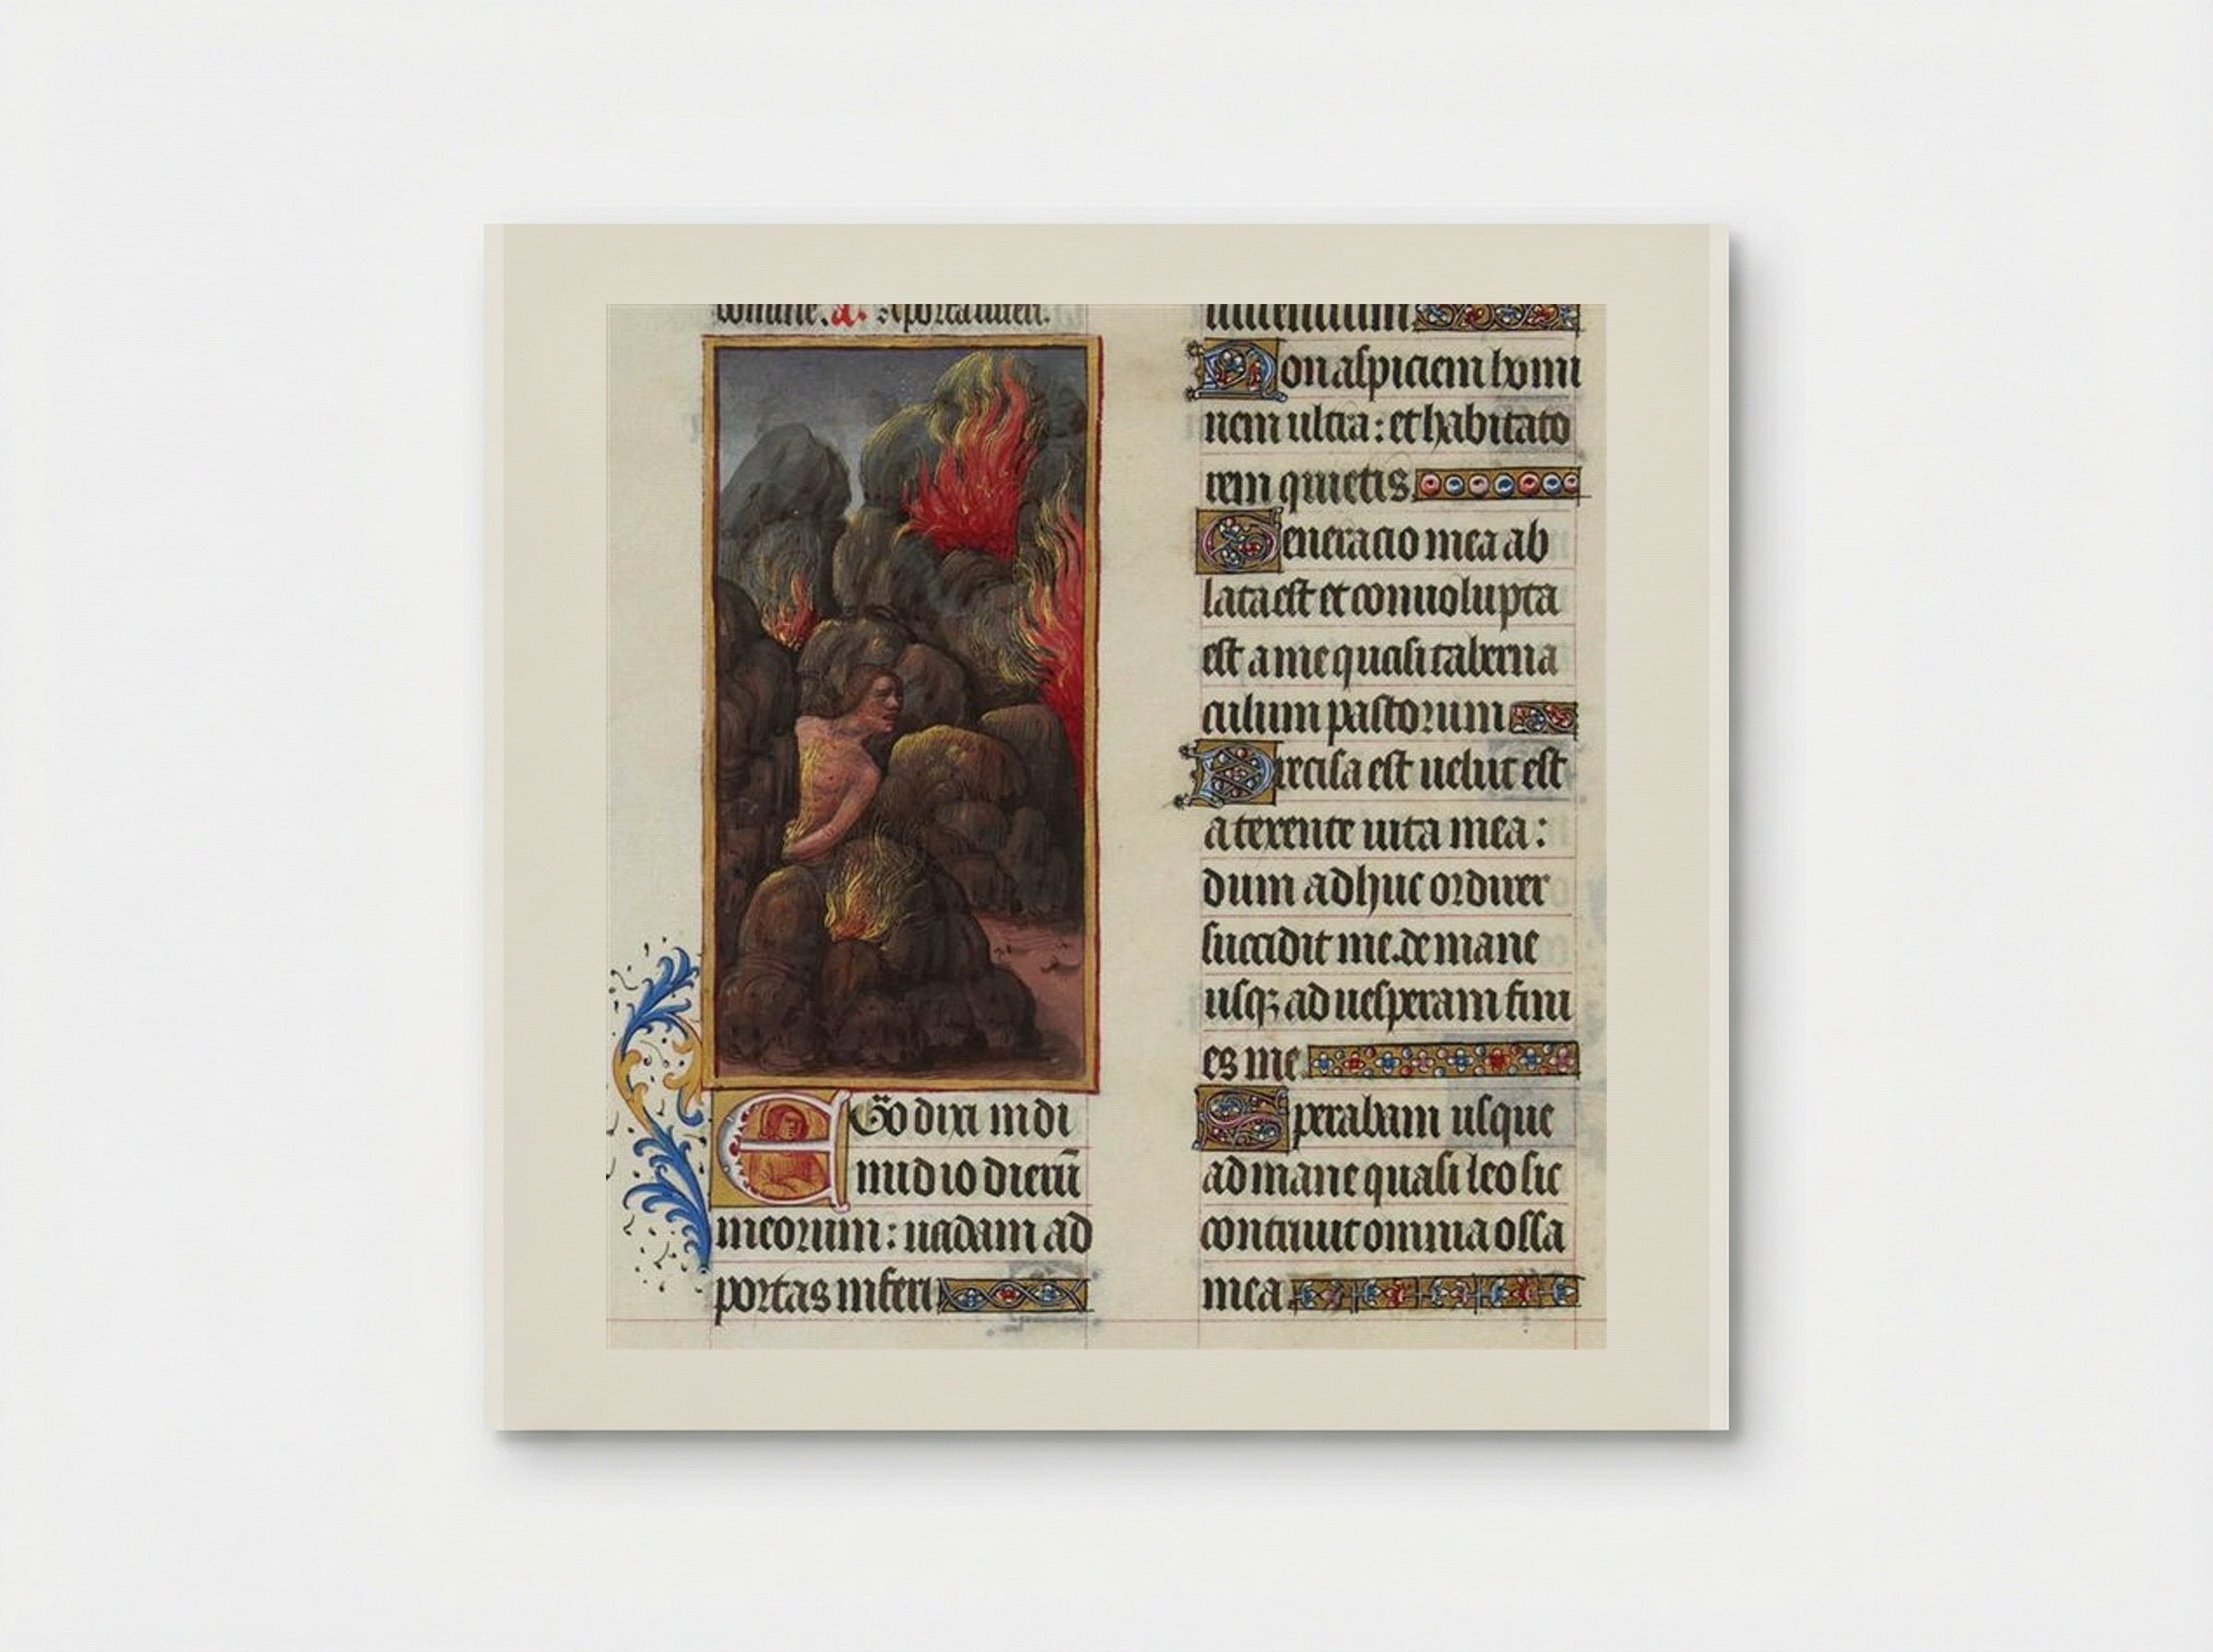 a. A porta inferi.
EGo dixi in di
midio dierū
meorum: uadam ad
portas inferi
uiuentium.
Non aspiciem homi
nem ultra: et habitato
rem quietis.
Generacio mea ab
lata est et conuolupta
est a me quasi taberna
culum pastorum
Precisa est uelut est
a texente uita mea:
dum adhuc ordirer
succidit me. de mane
usqꝫ ad uesperam fini
es me.
Sperabam usque
ad mane quasi leo sic
contriuit omnia ossa
mea.